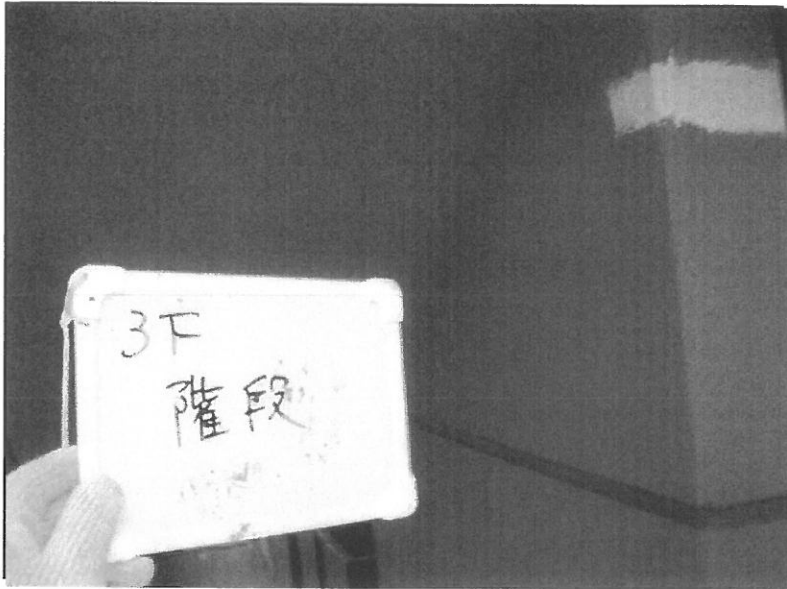 3F
階段